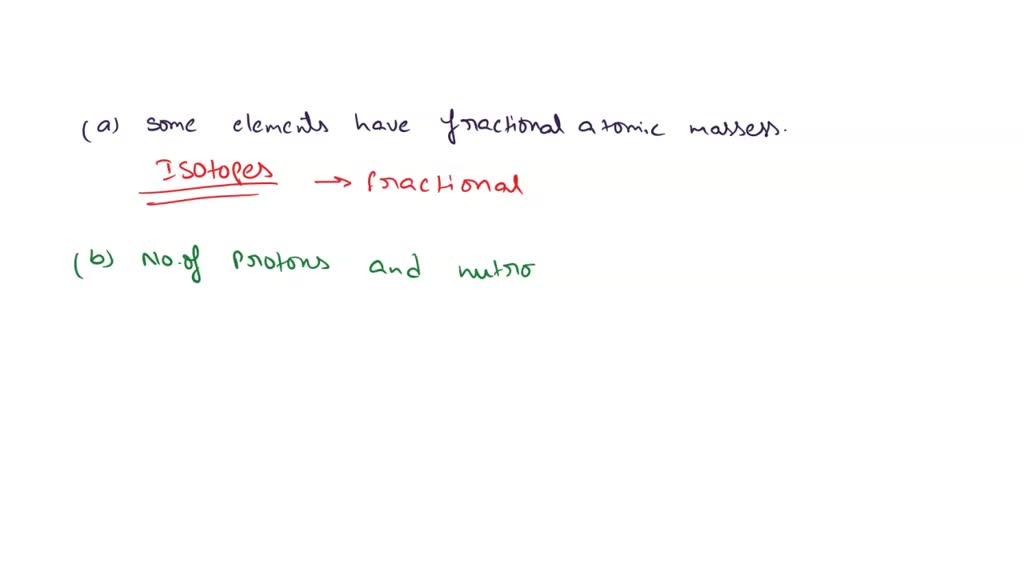 (a) some elements have fractional atomic massess.
Isotopes → fractional
(b) No.of Protons and nutro